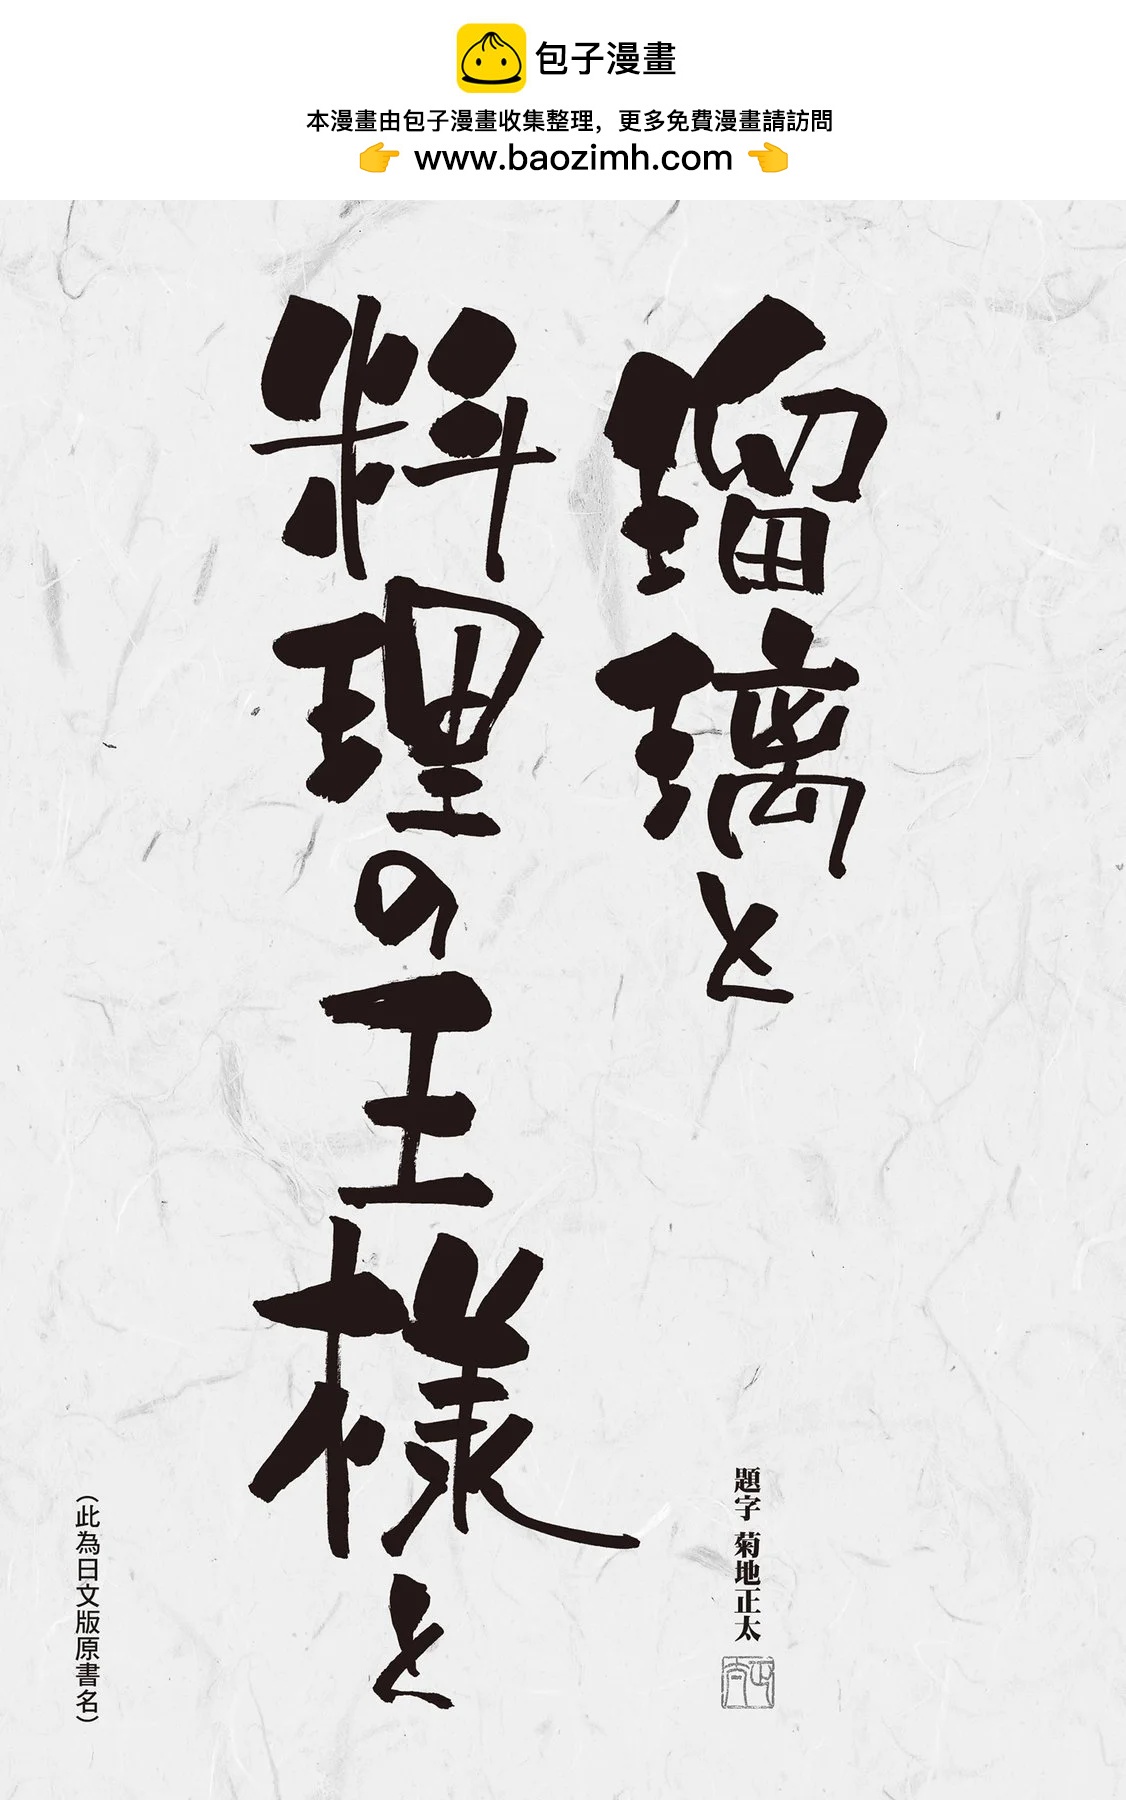 包子漫畫
本漫畫由包子漫畫收集整理，更多免費漫畫請訪問
👉 www.baozimh.com 👈
瑠璃と
料理の王様と
題字 菊地正太
正太
（此為日文版原書名）